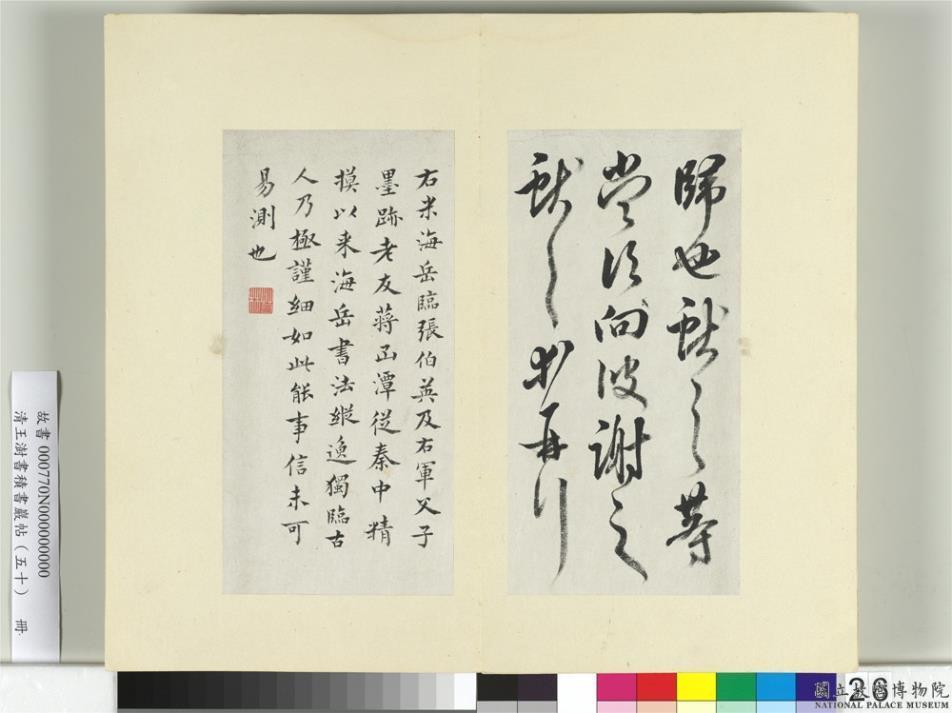 歸也獻之等
當須向彼謝之
獻之
再行
右米海岳臨張伯英及右軍父子
墨跡老友蔣函潭從秦中精
摸以来海岳書法縱逸獨臨古
人乃極謹細如此能事信未可
易測也
故書 000770N000000000
清王澍書積書巖帖(五十) 冊
26
國立故宮博物院
NATIONAL PALACE MUSEUM